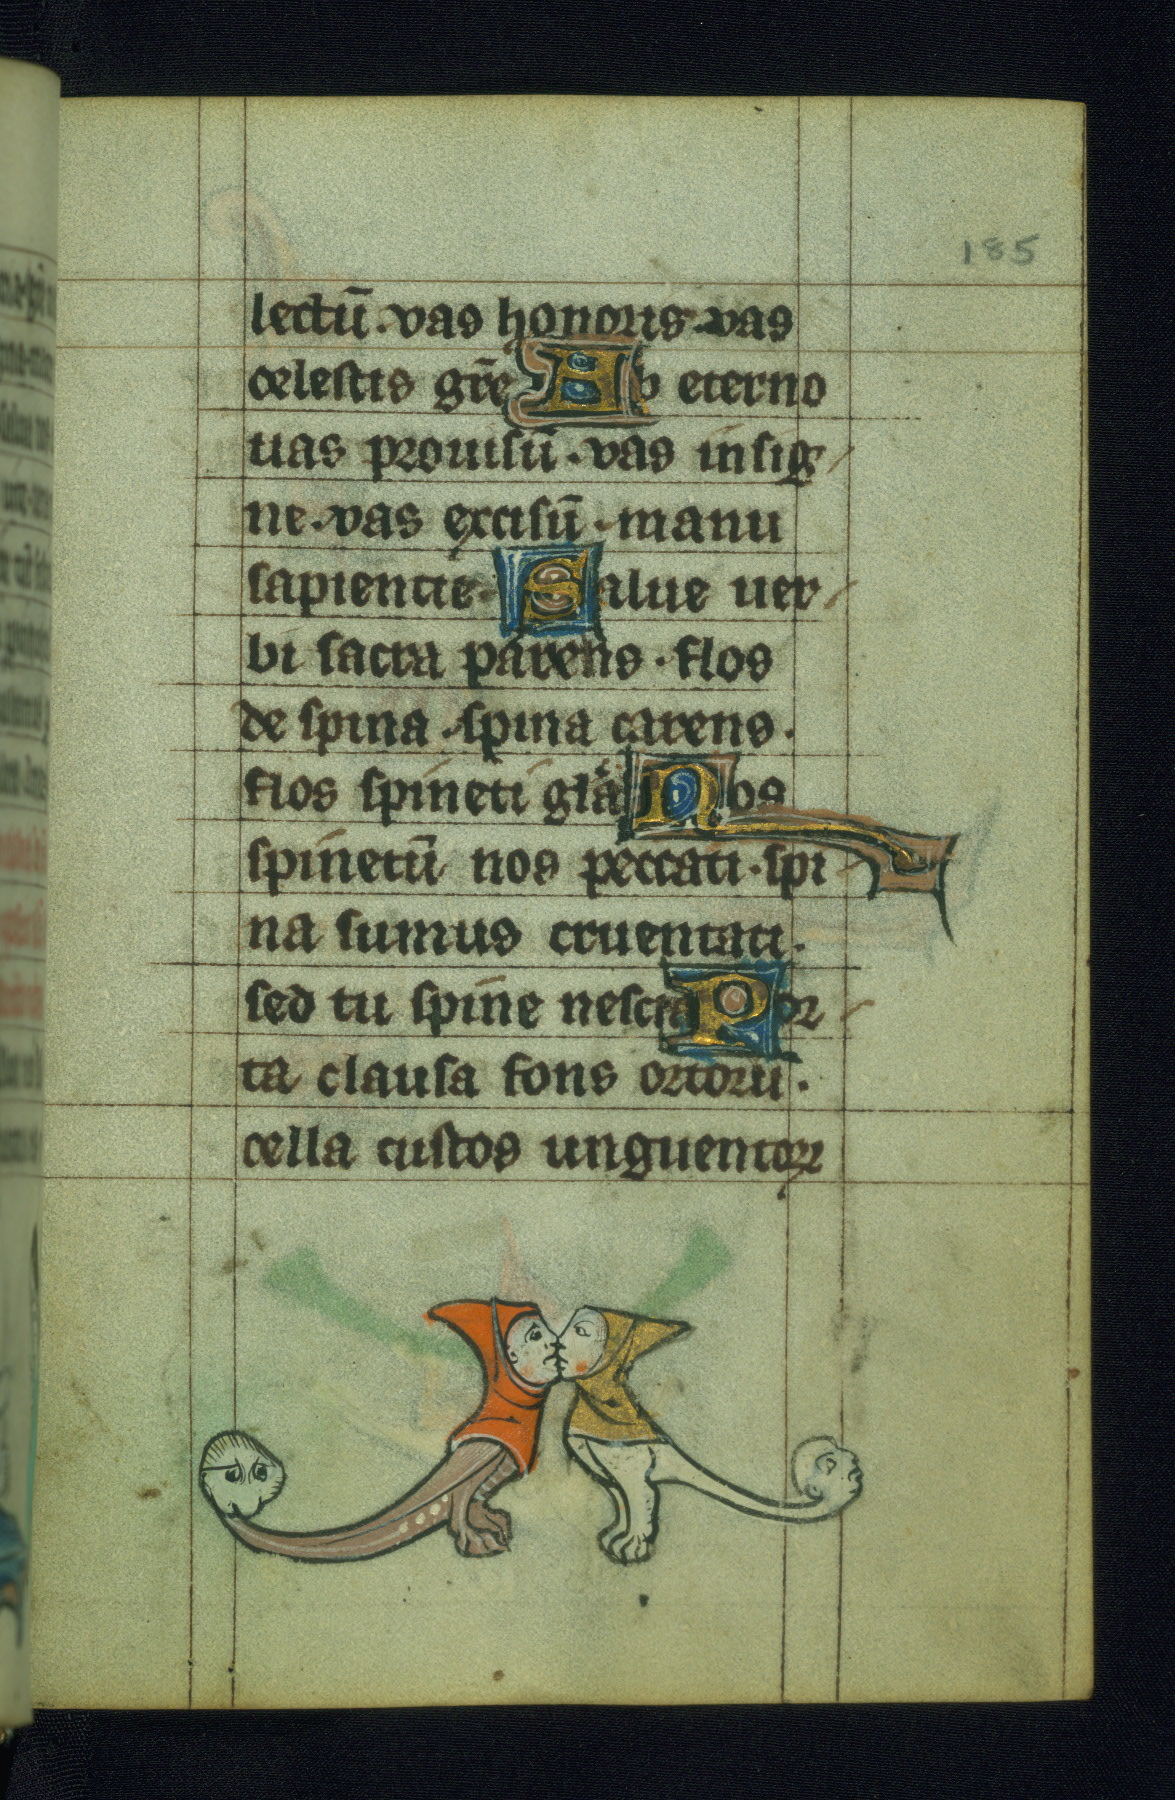 185
lectū · vas honoris · vas
celestis gr̄e Ab eterno
uas prouisū · vas insig
ne · vas excisū · manu
sapiencie · Salue uer
bi sacra parens · flos
de spina · spina carens ·
flos spineti glā Nos
spinetū nos peccati · spi
na sumus cruentati ·
sed tu spine nescia Por
ta clausa fons ortorū ·
cella custos unguentoꝝ